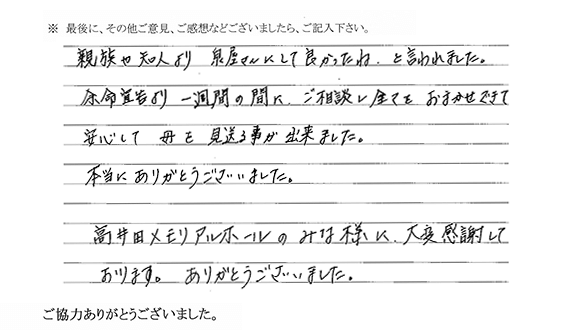 ※ 最後に、その他ご意見、ご感想などございましたら、ご記入下さい。
親族や知人より 泉屋さんにして良かったね、と言われました。
余命宣告より 一週間の間に、ご相談し全てを おまかせできて
安心して 母を 見送る事が 出来ました。
本当に ありがとうございました。
高井田メモリアルホールの みな様に、大変感謝して
おります。 ありがとうございました。
ご協力ありがとうございました。